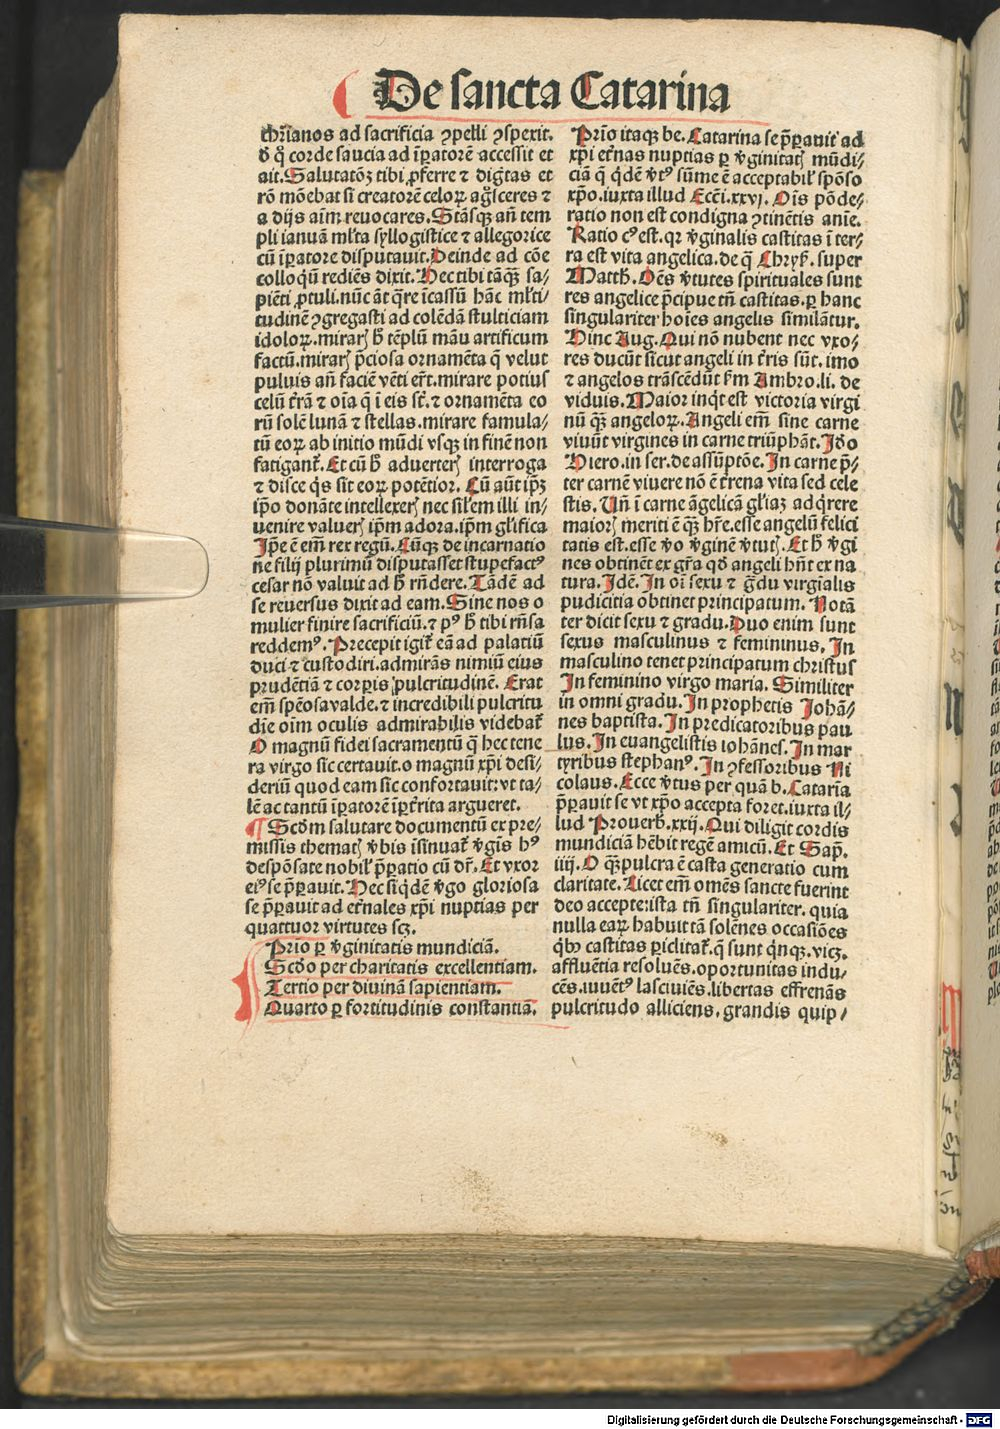 De sancta Catarina
chr̄ianos ad sacrificia ↄpelli ↄspexit.
d̄ q̊ corde saucia ad īꝑatorē accessit et
ait. Salutatōꝫ tibi ꝓferre ⁊ dig̅tas et
rō mōebat si creatorē celoꝝ ag̊sceres ⁊
a dijs aīm reuocares. Stāsqꝫ an̄ tem
pli ianuā ml̄ta syllogistice ⁊ allegorice
cū īꝑatore disputauit. Deinde ad cōe
colloq̇ū rediēs dixit. Hec tibi tāqꝫ̄ sa⸗
piēti ꝓtuli. nūc āt q̄re īcassū hāc ml̄ti⸗
tudinē ↄgregasti ad colēdā stulticiam
idoloꝝ. mirar̄ꝭ h̄ tēplū māu artificum
factū. mirar̄ꝭ p̄ciosa ornamēta q̄ velut
puluis an̄ faciē vēti er̄t. mirare potius
celū t̄rā ⁊ oīa q̄ ī eis st̄. ⁊ ornamēta eo
rū solē lunā ⁊ stellas. mirare famula⸗
tū eoꝝ ab initio mūdi vsqꝫ in finē non
fatigant̄. Et cū h̄ aduerter̄ꝭ interroga
⁊ disce q̇s sit eoꝝ potētior. Cū aūt ip̄ꝫ
ip̄o donāte intellexer̄ꝭ nec sil̄em illi in⸗
uenire valuer̄ꝭ ip̄m adora. ip̄m gl̄ifica
Ip̄e ē em̄ rex regū. Cūqꝫ de incarnatio
ne filij plurimū disputasset stupefactꝰ
cesar nō valuit ad h̄ rn̄dere. Tādē ad
se reuersus dixit ad eam. Sine nos o
mulier finire sacrificiū. ⁊ pꝰ h̄ tibi rn̄sa
reddemꝰ. Precepit igit̄ eā ad palatiū
duci ⁊ custodiri. admirās nimiū eius
prudētiā ⁊ corꝑis pulcritudinē. Erat
em̄ spēosa valde. ⁊ incredibili pulcritu
dīe oīm oculis admirabilis videbat̄
O magnū fidei sacramentū q̄ hec tene
ra virgo sic certauit. o magnū xp̄i desi⸗
deriū quod eam sic confortauit: vt ta⸗
lē ac tantū īꝑatorē īꝑt̄rita argueret.
¶ Scd̄m salutare documentū ex pre⸗
missis themat̄ꝭ v̄bis īsinuat̄ v̄gīs hꝰ
despōsate nobil̄ p̄ꝑatio cū dr̄. Et vxor
eiꝰ se p̄ꝑauit. Hec siq̇dē v̄go gloriosa
se p̄ꝑauit ad et̄nales xp̄i nuptias per
quattuor virtutes scꝫ.
Prīo ꝑ v̄ginitatis mundiciā.
Scd̄o per charitatis excellentiam.
Tertio per diuinā sapientiam.
Quarto ꝑ fortitudinis constantiā.
Prīo itaqꝫ be. Catarina se p̄ꝑauit ad
xp̄i et̄nas nuptias ꝑ v̄ginitat̄ꝭ mūdi⸗
ciā q̄ q̇dē v̄tꝰ sūme ē acceptabil̄ spōso
xp̄o. iuxta illud Ecc̄i. xxvj. Oīs pōde⸗
ratio non est condigna ↄtinētis anīe.
Ratio cꝰ est. qꝛ v̄ginalis castitas ī ter⸗
ra est vita angelica. de q̄ Chryẜ. super
Matth̄. Oēs v̄tutes spirituales sunt
res angelice p̄cipue tn̄ castitas. ꝑ hanc
singulariter hoīes angelis similātur.
Hinc Aug. Qui nō nubent nec vxo⸗
res ducūt sicut angeli in t̄ris sūt. imo
⁊ angelos trāscēdūt ẜm Ambro. li. de
viduis. Maior inq̇t est victoria virgi
nū qꝫ̄ angeloꝝ. Angeli em̄ sine carne
viuūt virgines in carne triūphāt. Id̄o
Hiero. in ser. de assūptōe. In carne p̄⸗
ter carnē viuere nō ē t̄rena vita sed cele
stis. Un̄ ī carne āgelicā gl̄iaꝫ adq̇rere
maior̄ꝭ meriti ē qꝫ̄ hr̄e. esse angelū felici
tatis est. esse v̄o v̄ginē v̄tut̄ꝭ. Et h̄ v̄gi
nes obtinēt ex gr̄a qd̄ angeli hn̄t ex na
tura. Idē. In oī sexu ⁊ g̊du virgīalis
pudicitia obtinet principatum. Notā
ter dicit sexu ⁊ gradu. Duo enim sunt
sexus masculinus ⁊ femininus. In
masculino tenet principatum christus
In feminino virgo maria. Similiter
in omni gradu. In prophetis Johā⸗
nes baptista. In predicatoribus pau
lus. In euangelistis iohānes. In mar
tyribus stephanꝰ. In ↄfessoribus Ni
colaus. Ecce v̄tus per quā b. Catarīa
p̄ꝑauit se vt xp̄o accepta foret. iuxta il⸗
lud Prouerb̄. xxij. Qui diligit cordis
mundiciā hēbit regē amicū. Et Sap̄.
iiij. O qꝫ̄ pulcra ē casta generatio cum
claritate. Licet em̄ omēs sancte fuerint
deo accepte: ista tn̄ singulariter. quia
nulla eaꝝ habuit tā solēnes occasiōes
qͥbꝰ castitas ꝑiclitat̄. q̄ sunt q̇nqꝫ. vicꝫ.
affluētia resoluēs. oportunitas indu⸗
cēs. iuuētꝰ lasciuiēs. libertas effrenās
pulcritudo alliciens. grandis quip⸗
Digitalisierung gefördert durch die Deutsche Forschungsgemeinschaft - DFG